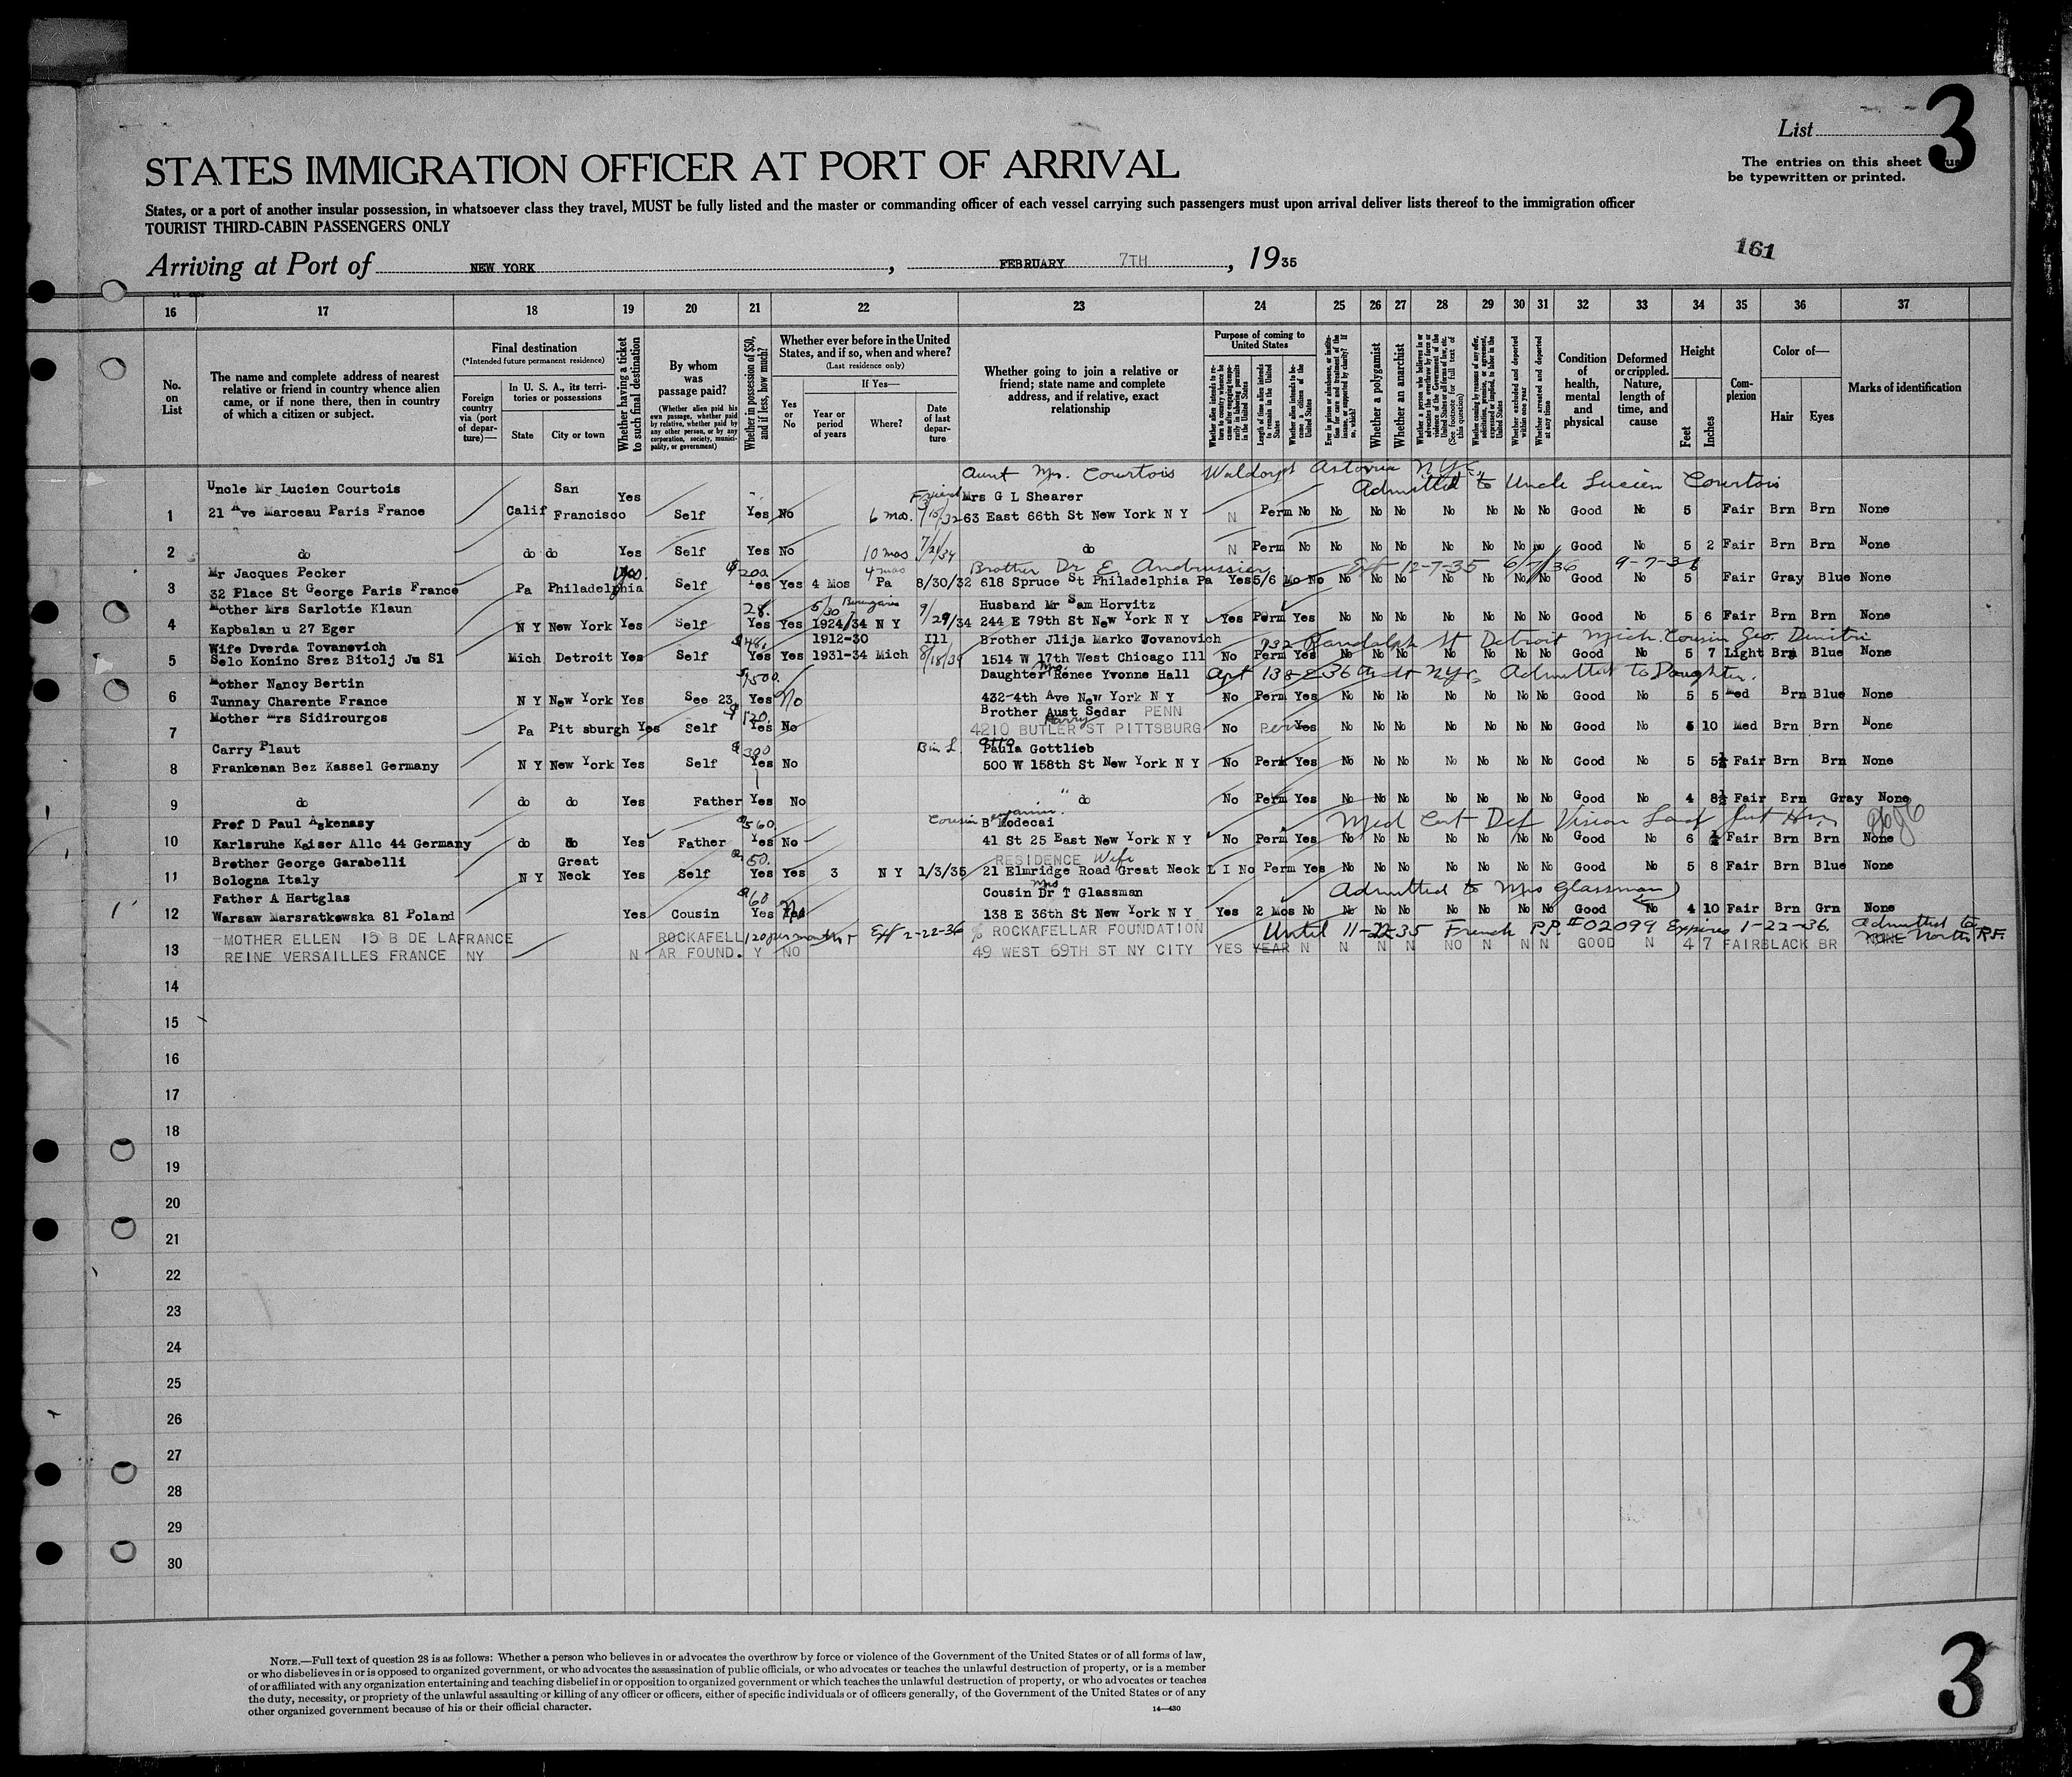 List 3
STATES IMMIGRATION OFFICER AT PORT OF ARRIVAL
The entries on this sheet
be typewritten or printed.
States, or a port of another insular possession, in whatsoever class they travel, MUST be fully listed and the master or commanding officer of each vessel carrying such passengers must upon arrival deliver lists thereof to the immigration officer
TOURIST THIRD-CABIN PASSENGERS ONLY
161
Arriving at Port of NEW YORK, FEBRUARY 7TH, 1935
16 17 18 19 20 21 22 23 24 25 26 27 28 29 30 31 32 33 34 35 36 37
No. on List
The name and complete address of nearest relative or friend in country whence alien came, or if none there, then in country of which a citizen or subject.
Final destination
(*Intended future permanent residence)
Foreign country via (port of departure)—
In U. S. A., its territories or possessions
State
City or town
Whether having a ticket to such final destination
By whom was passage paid?
(Whether alien paid his own passage, whether paid by relative, whether paid by any other person, or by any corporation, society, municipality, or government)
Whether in possession of $50, and if less, how much?
Whether ever before in the United States, and if so, when and where?
(Last residence only)
Yes or No
If Yes—
Year or period of years
Where?
Date of last departure
Whether going to join a relative or friend; state name and complete address, and if relative, exact relationship
Purpose of coming to United States
Whether alien intends to return to country whence he came after engaging temporarily in laboring pursuits in the United States
Length of time alien intends to remain in the United States
Whether alien intends to become a citizen of the United States
Ever in prison or almshouse, or institution for care and treatment of the insane, or supported by charity? If so, which?
Whether a polygamist
Whether an anarchist
(See footnote for full text of this question)
Whether coming by reasons of any offer, solicitation, promise, or agreement, expressed or implied, to labor in the United States
Whether excluded and deported within one year
Whether arrested and deported at any time
Condition of health, mental and physical
Deformed or crippled. Nature, length of time, and cause
Height
Feet
Inches
Complexion
Color of—
Hair
Eyes
Marks of identification
Aunt Mrs. Courtois Waldorf Astoria NYC
Admitted to Uncle Lucien Courtois
Uncle Mr Lucien Courtois San Yes Friend Mrs G L Shearer
1 21 Ave Marceau Paris France Calif Francisco Self Yes No 6 mos. 63 East 66th St New York N Y N Perm No No No No No No No No Good No 5 Fair Brn Brn None
2 do do do Yes Self Yes No 10 mos 7/21/34 do N Perm No No No No No No No No Good No 5 2 Fair Brn Brn None
Mr Jacques Pecker $200 4 mos Brother Dr E Andrussier Eff 12-7-35 6/7/36 9-7-36
3 32 Place St George Paris France Pa Philadelphia Yes Self Yes Yes 4 Mos Pa 8/30/32 618 Spruce St Philadelphia Pa Yes 5/6 Mo No No No No No No No No Good No 5 Fair Gray Blue None
Mother Mrs Sarlotie Klaun 28. 5/30 Berengaria Husband Mr Sam Horvitz
4 Kapbalan u 27 Eger N Y New York Yes Self Yes Yes 1924/34 N Y 9/29/34 244 E 79th St New York N Y Yes Perm Yes No No No No No No No Good No 5 6 Fair Brn Brn None
Wife Dverda Tovanevich 1912-30 Ill Brother Jlija Marko Tovanovich 732 Randolph St Detroit Mich. Cousin Geo. Dimitri
5 Selo Konino Srez Bitolj Ju Sl Mich Detroit Yes Self Yes Yes 1931-34 Mich 1514 W 17th West Chicago Ill No Perm Yes No No No No No No No Good No 5 7 Light Brn Blue None
Mother Nancy Bertin $500. Daughter Mrs. Renee Yvonne Hall Apt 138 E 36th St NYC Admitted to Daughter.
6 Tunnay Charente France N Y New York Yes See 23 Yes No 432-4th Ave New York N Y No Perm Yes No No No No No No No Good No 5 5 Med Brn Blue None
Mother Mrs Sidirourgos $120. Brother Aust Sedar PENN
Harry
7 Pa Pit sburgh Yes Self Yes No 4210 BUTLER ST PITTSBURG No Perm Yes No No No No No No No Good No 5 10 Med Brn Brn None
Carry Plaut $300 Paula Gottlieb
8 Frankenan Bez Kassel Germany N Y New York Yes Self Yes No 500 W 158th St New York N Y No Perm Yes No No No No No No No Good No 5 5½ Fair Brn Brn None
9 do do do Yes Father Yes No do No Perm Yes No No No No No No No Good No 4 8½ Fair Brn Gray None
Prof D Paul Askenasy $560. Cousin Benjamin Modecai Med Cert Def Vision
10 Karlsruhe Kaiser Allc 44 Germany do do Yes Father Yes No 41 St 25 East New York N Y No Perm Yes No No No No No No No Good No 6 ½ Fair Brn Brn None
Brother George Garabelli Great $50. RESIDENCE Wife
11 Bologna Italy N Y Neck Yes Self Yes Yes 3 N Y 1/3/35 21 Elmridge Road Great Neck L I No Perm Yes No No No No No No No Good No 5 8 Fair Brn Blue None
Father A Hartglas $60 Cousin Mrs Dr T Glassman Admitted to Mrs Glassman
12 Warsaw Marsratkowska 81 Poland Yes Cousin Yes No 138 E 36th St New York N Y Yes 2 Mos No No No No No No No No Good No 4 10 Fair Brn Grn None
MOTHER ELLEN 15 B DE LA FRANCE ROCKAFELL 120 per month Eff 2-22-36 % ROCKAFELLAR FOUNDATION Until 11-22-35 French P.P. # 02099 Expires 1-22-36. Admitted to
13 REINE VERSAILLES FRANCE NY N AR FOUND. Y NO 49 WEST 69TH ST NY CITY YES YEAR N N N N NO N N N GOOD N 4 7 FAIR BLACK BR NONE R.F.
14
15
16
17
18
19
20
21
22
23
24
25
26
27
28
29
30
NOTE.—Full text of question 28 is as follows: Whether a person who believes in or advocates the overthrow by force or violence of the Government of the United States or of all forms of law,
or who disbelieves in or is opposed to organized government, or who advocates the assassination of public officials, or who advocates or teaches the unlawful destruction of property, or is a member
of or affiliated with any organization entertaining and teaching disbelief in or opposition to organized government or which teaches the unlawful destruction of property, or who advocates or teaches
the duty, necessity, or propriety of the unlawful assaulting or killing of any officer or officers, either of specific individuals or of officers generally, of the Government of the United States or of any
other organized government because of his or their official character.
14—430
3